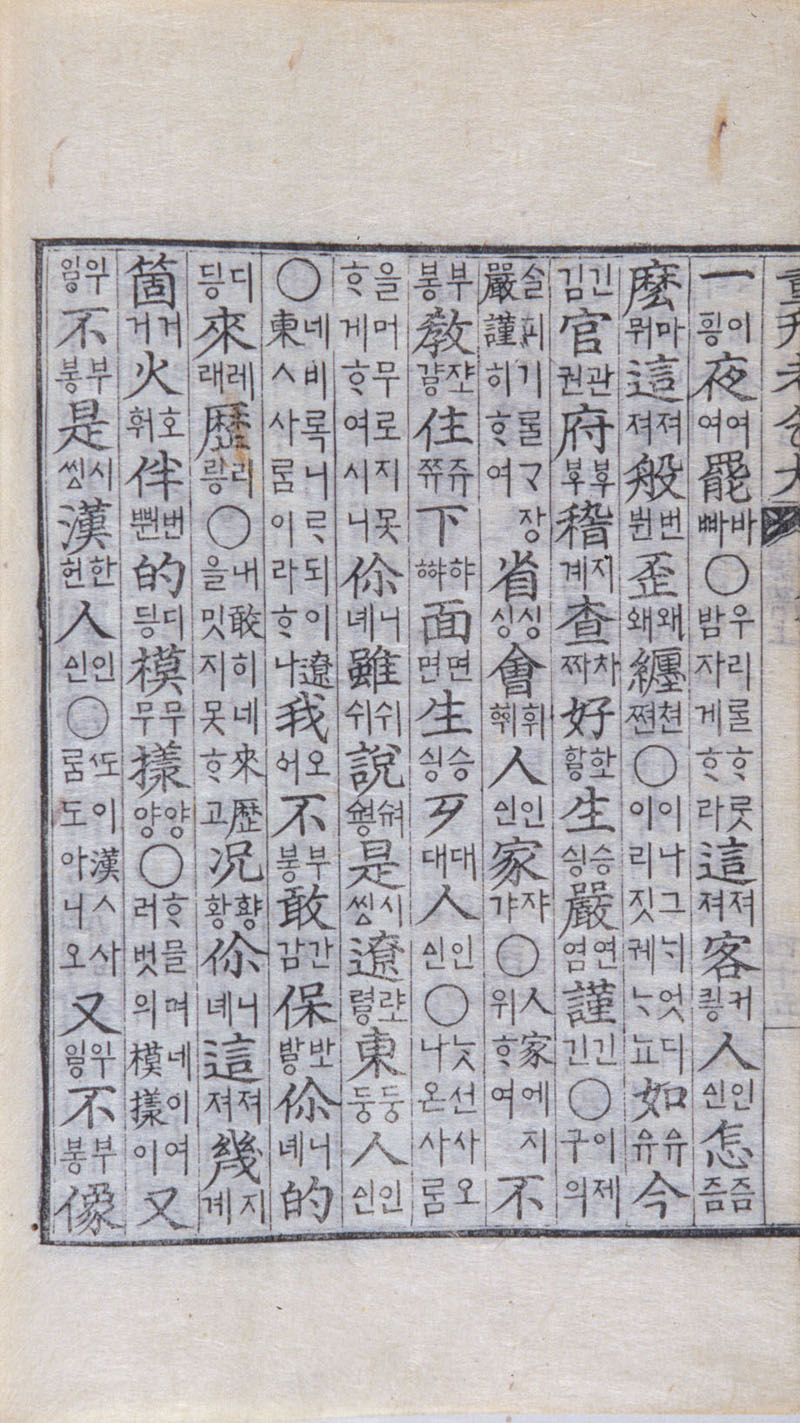 一이힝夜여여罷바빠○우리롤ᄒᆞ롯밤자게ᄒᆞ라這져져客커킝人인신怎즘즘
麼마뭐這져져般번붠歪왜왜纏쳔쪈○이나그ᄂᆡ엇디이리짓궤ᄂᆞ뇨如유유今
긴김官관권府부부稽지계查차짜好핲황生승싱嚴연염謹긴긴○이제구의
ᄉᆞᆯ피기롤ᄀᆞ장嚴謹히ᄒᆞ여省싱싱會휘ᅘᅱᆼ人인신家쟈갸○人家에지위ᄒᆞ여不
부봉敎쟢걍住쥬쮸下햐ᅘᅣ面면면生승싱歹대대人인신○ᄂᆞᆺ선사오나온사롬
을머무로지못ᄒᆞ게ᄒᆞ여시니你니녜雖쉬쉬說숴쉉是시씽遼럎령東둥둥人인신
○네비록니ᄅᆞ되이遼東ㅅ사롬이라ᄒᆞ나我오어不부봉敢간감保밯방你니녜的
디딩來레래歷리링○내敢히네來歷을밋지못ᄒᆞ고况황황你니녜這져져幾지계
箇거거火호휘伴번뿬的디딩模무무樣양양○ᄒᆞ믈며네이여러벗의模樣이又
위잉不부봉是시씽漢한헌人인신○ᄯᅩ이漢ㅅ사롬도아니오又위잉不부봉像